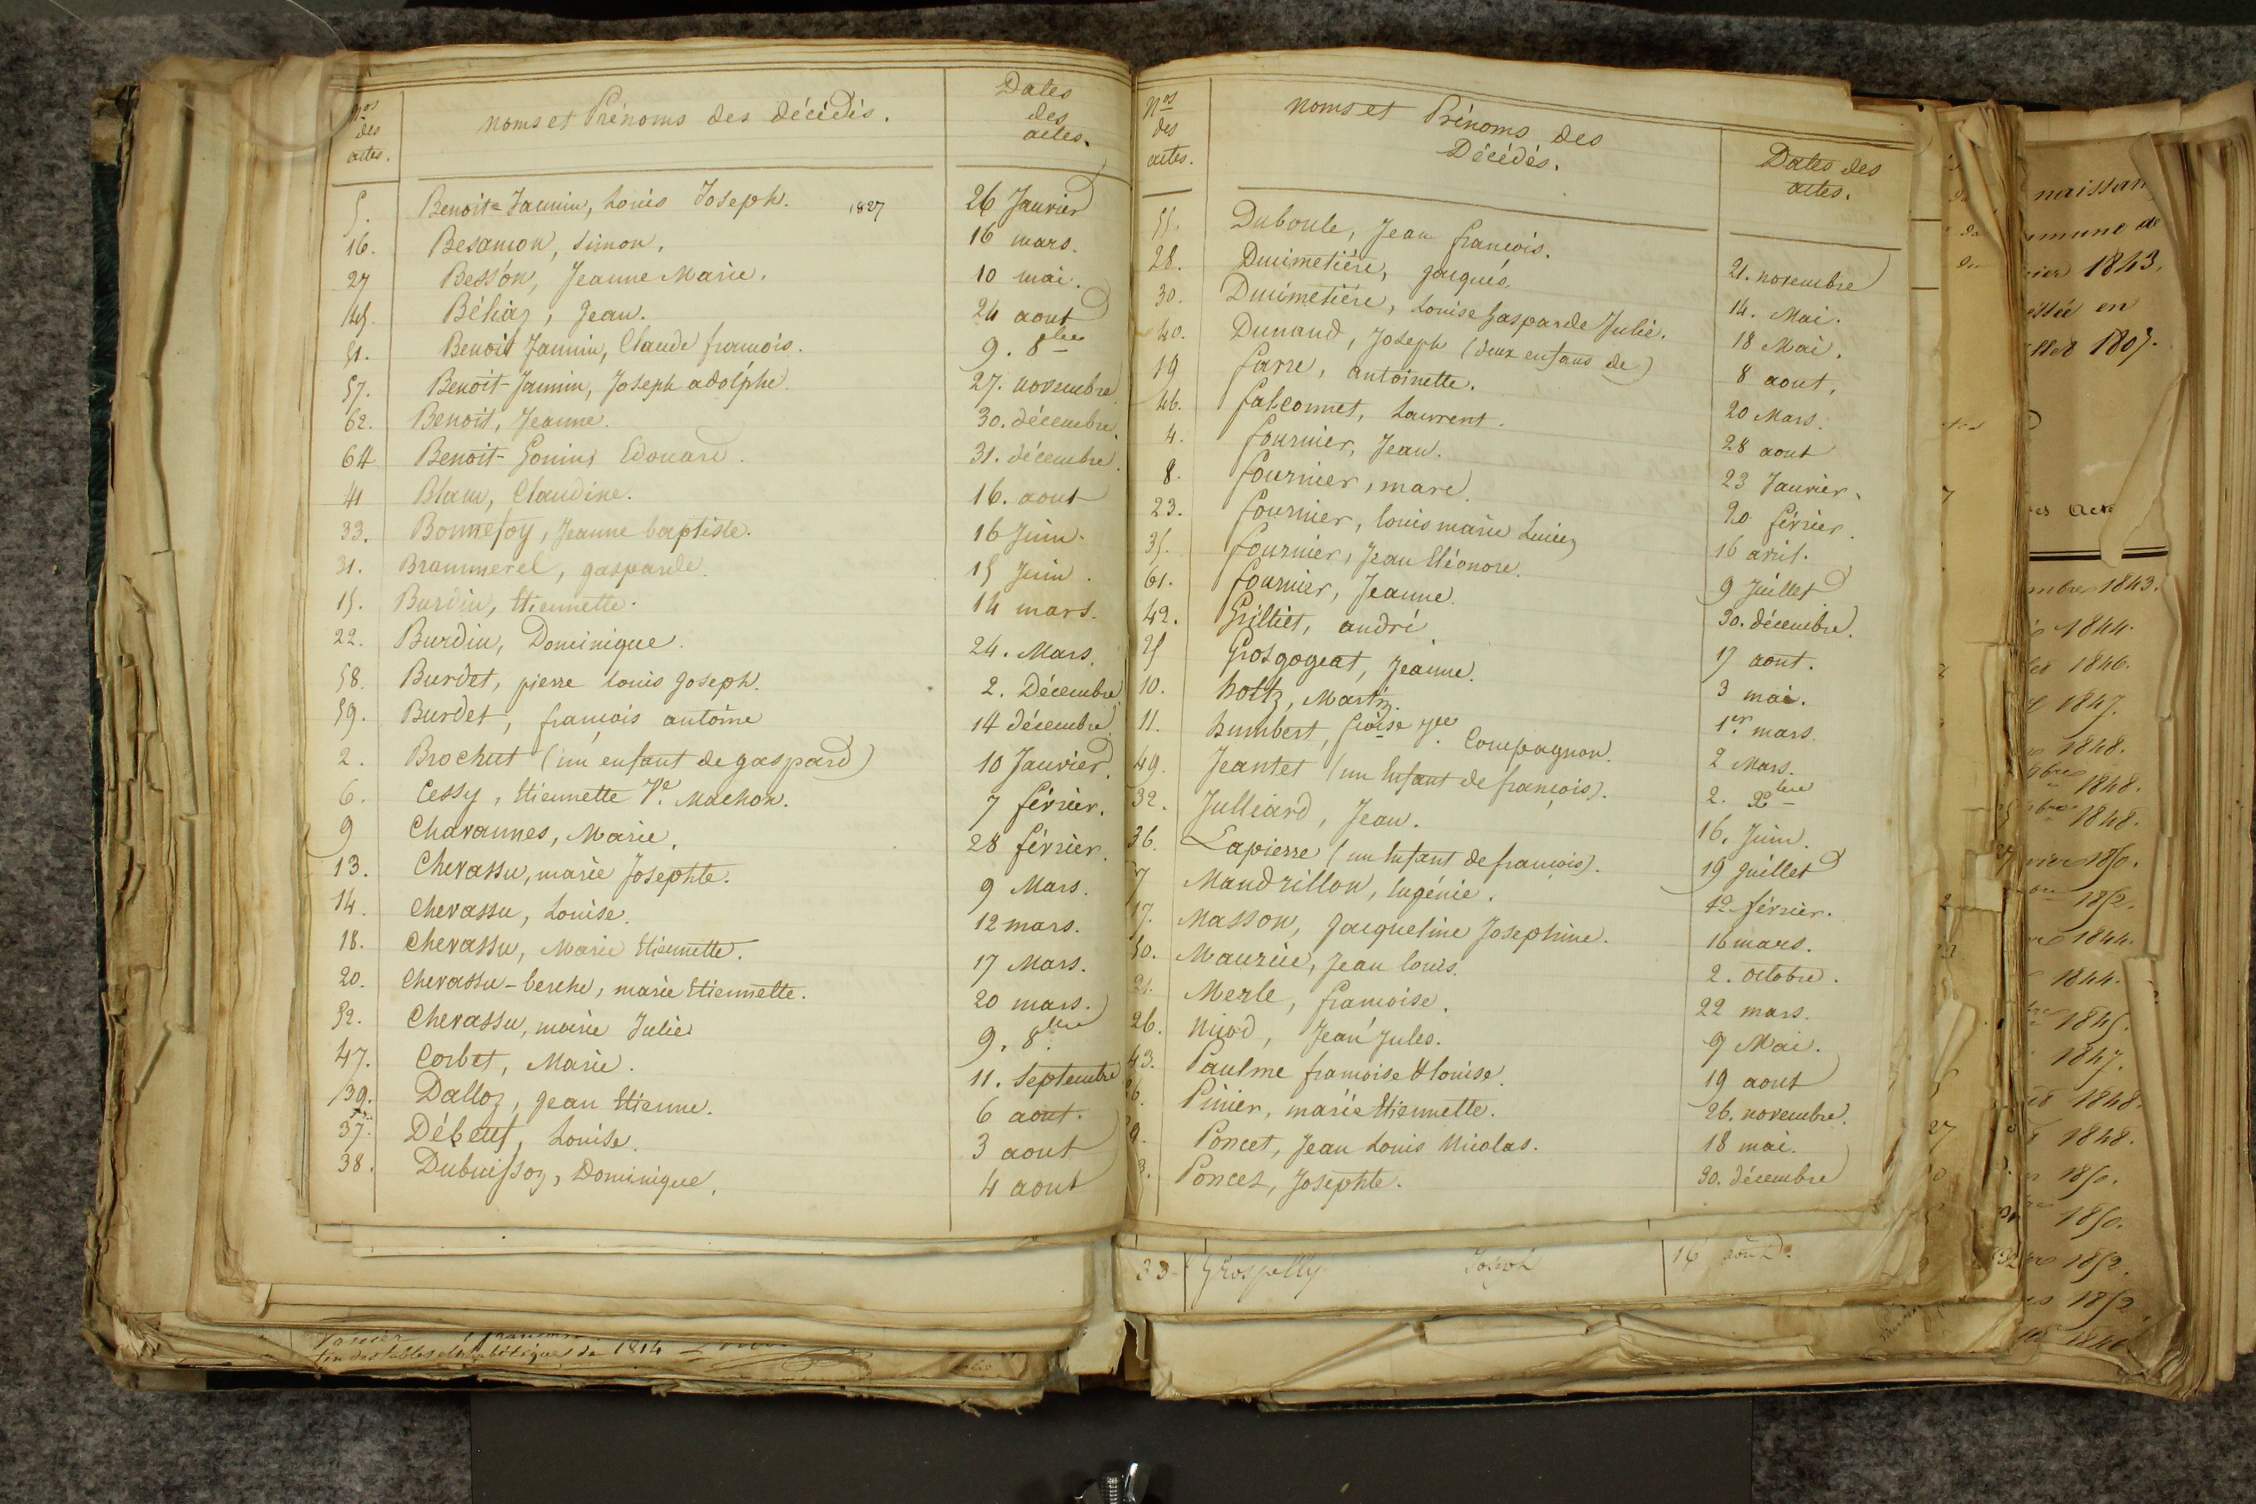 Nos des actes. | Noms et Prénoms des décédés. | Dates des actes.
5. Benoit-Jannin, Louis Joseph. 1827 26 Janvier
16. Besançon, Simon. 16 mars.
27 Besson, Jeanne Marie. 10 mai.
45. Béliaz, Jean. 24 aout
51. Benoit Jannin, Claude françois. 9. 8bre
57. Benoit-Jannin, Joseph adolphe. 27. novembre
62. Benoit, Jeanne. 30. décembre.
64 Benoit-Gonin, Edouard. 31. décembre.
41 Blanc, Claudine. 16. aout
33. Bonnefoy, Jeanne baptiste. 16 Juin.
31. Brammerel, gasparde. 15 Juin.
15. Burdin, Etiennette. 14 mars.
22. Burdin, Dominique. 24. Mars.
58. Burdet, pierre louis Joseph. 2. Décembre
59. Burdet, françois antoine 14 décembre
2. Brochut (un enfant de gaspard) 10 Janvier.
6. Cessy, Etiennette Ve. Machon. 7 février.
9 Chavannes, Marie. 28 février.
13. Chevassu, marie Josephte. 9 Mars.
14. Chevassu, Louise. 12 mars.
18. Chevassu, Marie Etiennette. 17 Mars.
20. Chevassu-berche, marie Etiennette. 20 mars.
52. Chevassu, marie Julie 9. 8bre
47. Corbet, Marie. 11. Septembre
39. Dalloz, Jean Etienne. 6 aout.
37. Débeut, Louise. 3 aout
38. Dubuisson, Dominique. 4 aout
Nos des actes. | Noms et Prénoms des Décédés. | Dates des actes.
55. Duboule, Jean françois. 21. novembre
28. Ducimetière, Jacques. 14. Mai.
30. Ducimetière, Louise Gasparde Julie. 18 Mai.
40. Dunand, Joseph (deux enfans de) 8 aout.
19 Farre, antoinette. 20 Mars.
46. Falconnet, Laurent. 28 aout
4. Fournier, Jean. 23 Janvier.
8. Fournier, marc. 20 février.
23. Fournier, louis marie Lucien 16 avril.
35. Fournier, Jean Eléonore. 9 Juillet
61. Fournier, Jeanne. 30. décembre.
42. Gilliet, andré. 17 aout.
25 Grosgogeat, Jeanne. 3 mai.
10. holtz, Martin. 1er. mars.
11. humbert, froise Vve. Compagnon. 2 Mars.
49. Jeantet (un Enfant de françois). 2. Xbre
32. Julliard, Jean. 16. Juin.
36. Lapierre (un Enfant de françois). 19 Juillet
7 Mandrillon, Eugénie. 12 février.
17. Masson, Jacqueline Josephine. 16 mars.
50. Maurice, Jean louis. 2. octobre.
21. Merle, françoise. 22 mars.
26. Nicod, Jean Jules. 9 Mai.
43. Paulme françoise Hlouise. 19 aout
6. Pinier, marie Etiennette. 26. novembre.
9. Poncet, Jean Louis Nicolas. 18 mai.
3. Poncet, Josephte. 30. décembre
33 Grospelly Joseph 16
fin des tables alphabétiques de 1814
naissan
mune de
1843.
en
1807.
mbre 1843.
1844.
1846.
1847.
1848.
1848.
1848.
1850.
1852.
1844.
1844.
1845.
1847.
1848.
1848.
1850.
1850.
1852.
1852